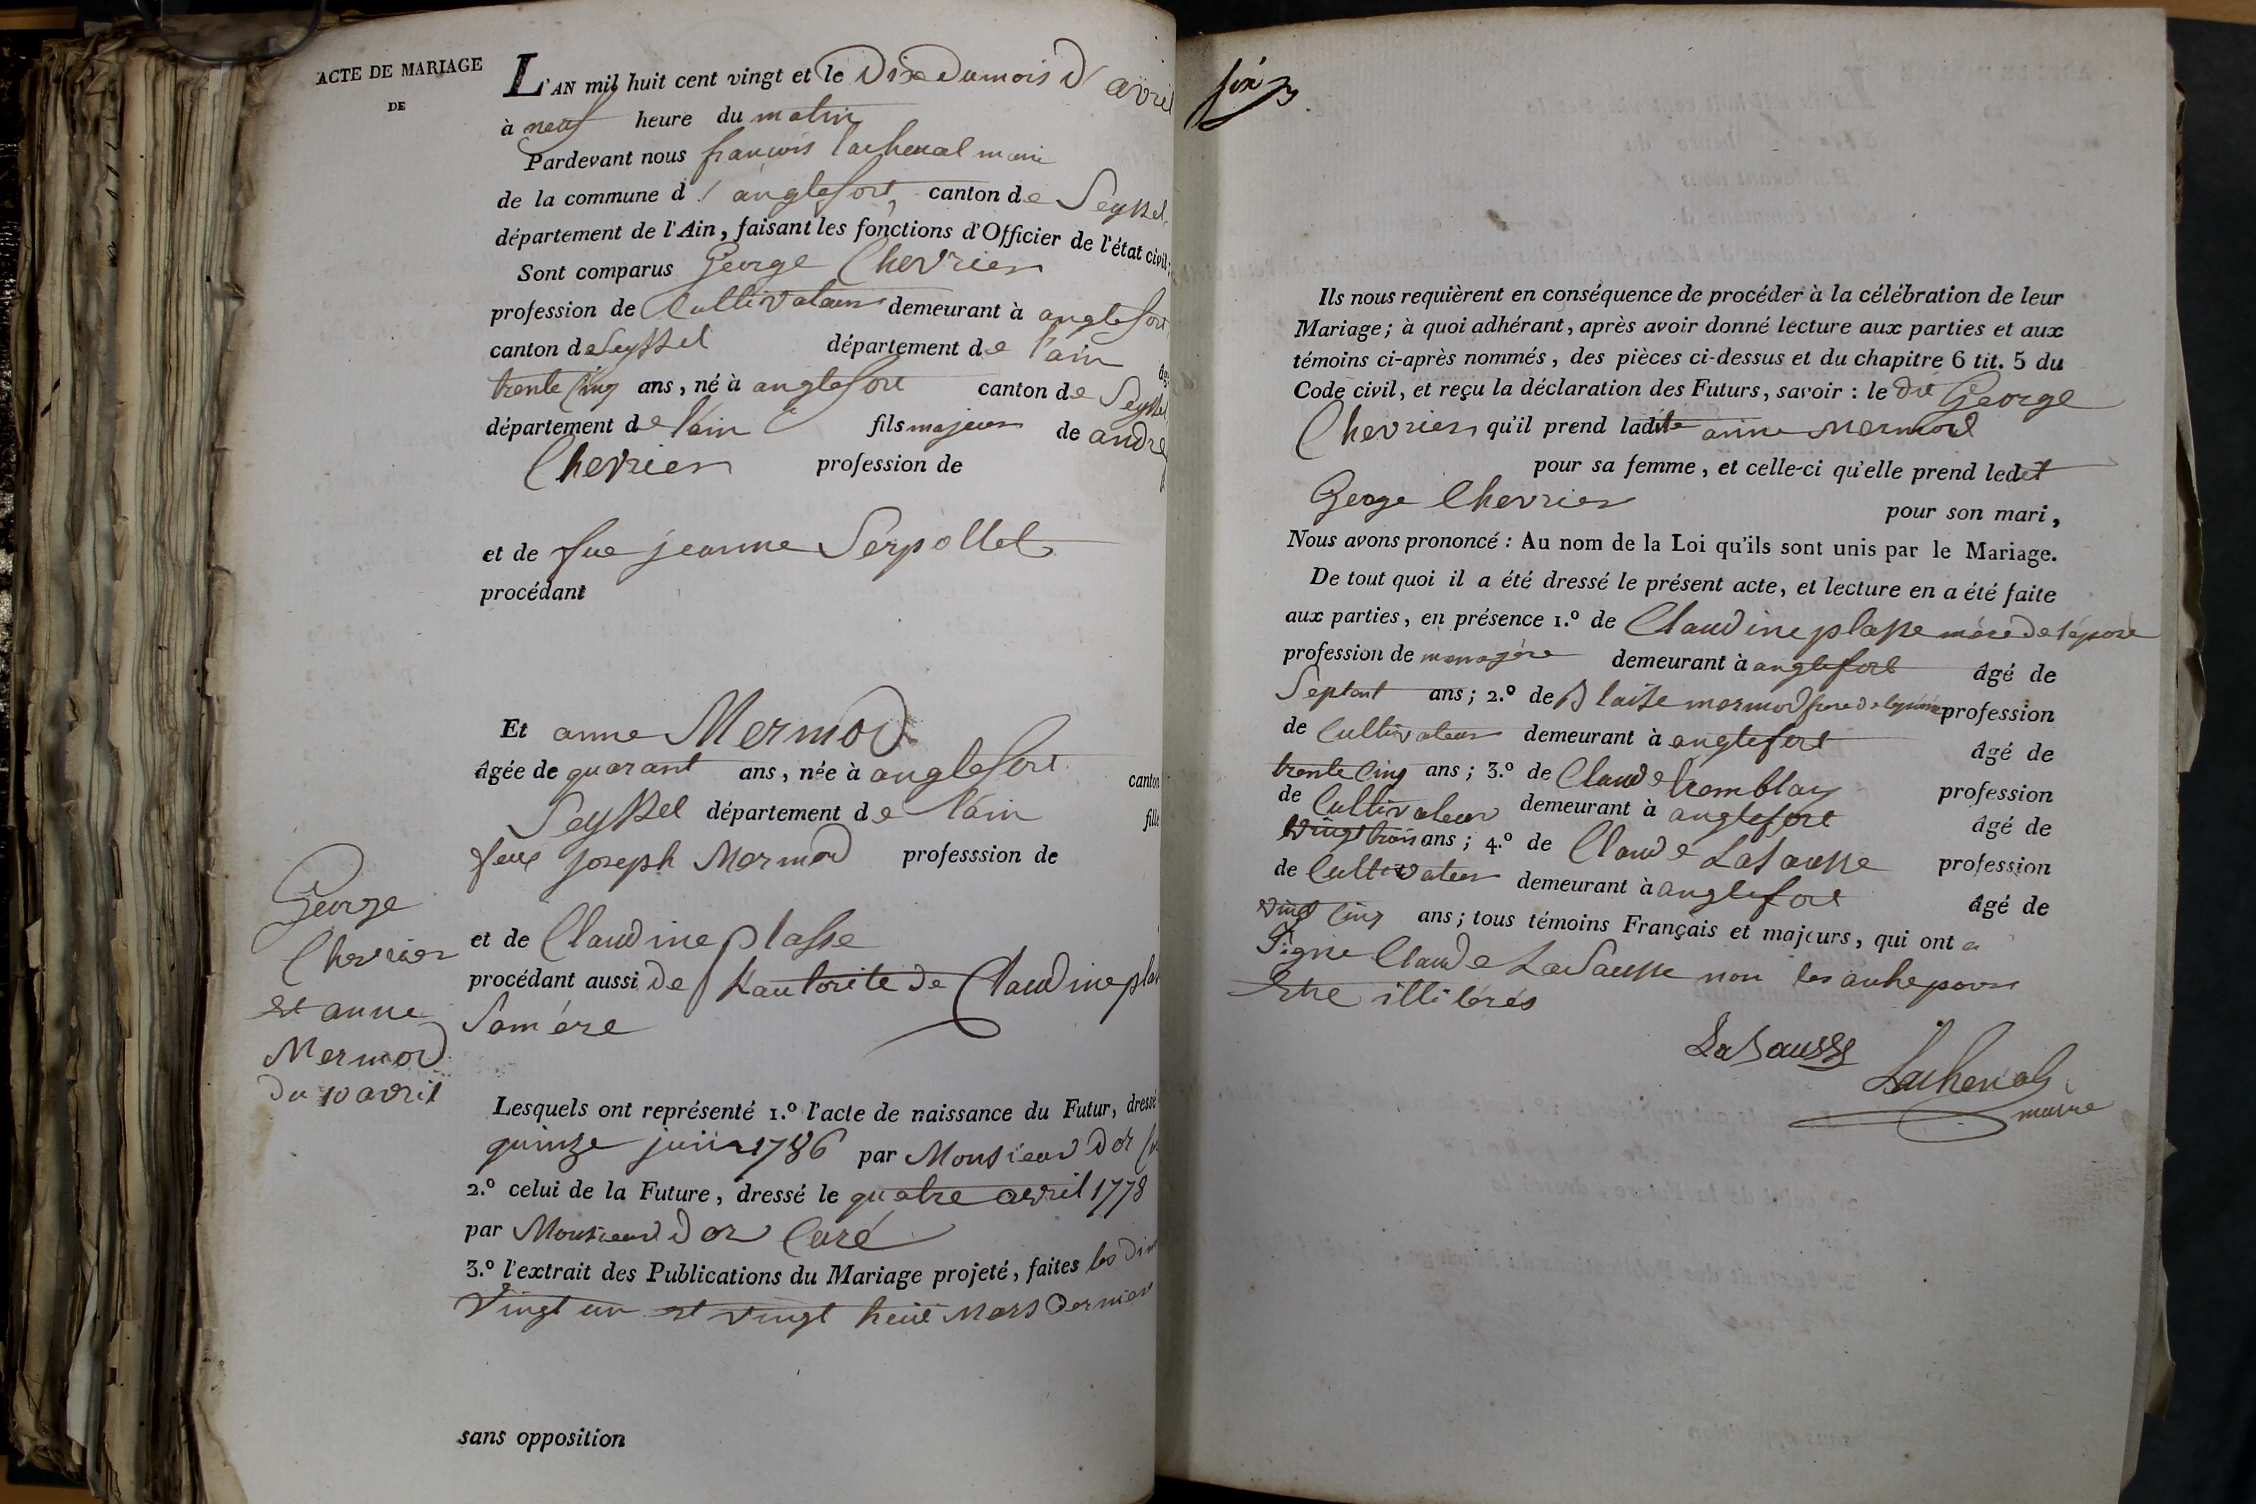 ACTE DE MARIAGE
DE
L'AN mil huit cent vingt et le Dix Du mois D'avril
à neuf heure du matin
Pardevant nous françois lachenal maire
de la commune d'anglefort, canton de Seyssel
département de l'Ain, faisant les fonctions d'Officier de l'état civil;
Sont comparus George Chevrier
profession de Cultivateur demeurant à anglefort
canton de Seyssel département de l'ain âgé
trente cinq ans, né à anglefort canton de Seyssel
département de l'ain fils majeur de andré
Chevrier profession de
et de fue jeanne Serpollet
procédant
Et anne Mermod
âgée de quarant ans, née à anglefort canton
Seyssel département de l'ain fille
feux joseph Mermod professsion de
et de Claudine plasse
procédant aussi de L'autorité de Claudine plas
Samére
George
Chevrier
et anne
Mermod
Du 10 avril
Lesquels ont représenté 1.º l'acte de naissance du Futur, dressé
quinze juin 1786 par Monsieur Dor
2.º celui de la Future, dressé le quatre avril 1778
par Monsieur Dor Curé
3.º l'extrait des Publications du Mariage projeté, faites les Dim
vingt un et vingt huit Mars Dernier
sans opposition
six
Ils nous requièrent en conséquence de procéder à la célébration de leur
Mariage; à quoi adhérant, après avoir donné lecture aux parties et aux
témoins ci-après nommés, des pièces ci-dessus et du chapitre 6 tit. 5 du
Code civil, et reçu la déclaration des Futurs, savoir : le dit George
Chevrier qu'il prend ladite anne Mermod
pour sa femme, et celle-ci qu'elle prend ledit
George Chevrier pour son mari,
Nous avons prononcé : Au nom de la Loi qu'ils sont unis par le Mariage.
De tout quoi il a été dressé le présent acte, et lecture en a été faite
aux parties, en présence 1.º de Claudine plasse mére de l'épouse
profession de menagére demeurant à anglefort âgé de
Septant ans; 2.º de Blaise mermod frere de lepouse profession
de Cultivateur demeurant à anglefort âgé de
trente cinq ans; 3.º de Claude tremblay profession
de Cultivateur demeurant à anglefort âgé de
vingt trois ans; 4.º de Claude Lasausse profession
de Cultivateur demeurant à anglefort âgé de
vingt cinq ans; tous témoins Français et majeurs, qui ont a
Signe Claude LaSausse non les autre pour
Etre illiterés
LaSausse
Lachenal
maire